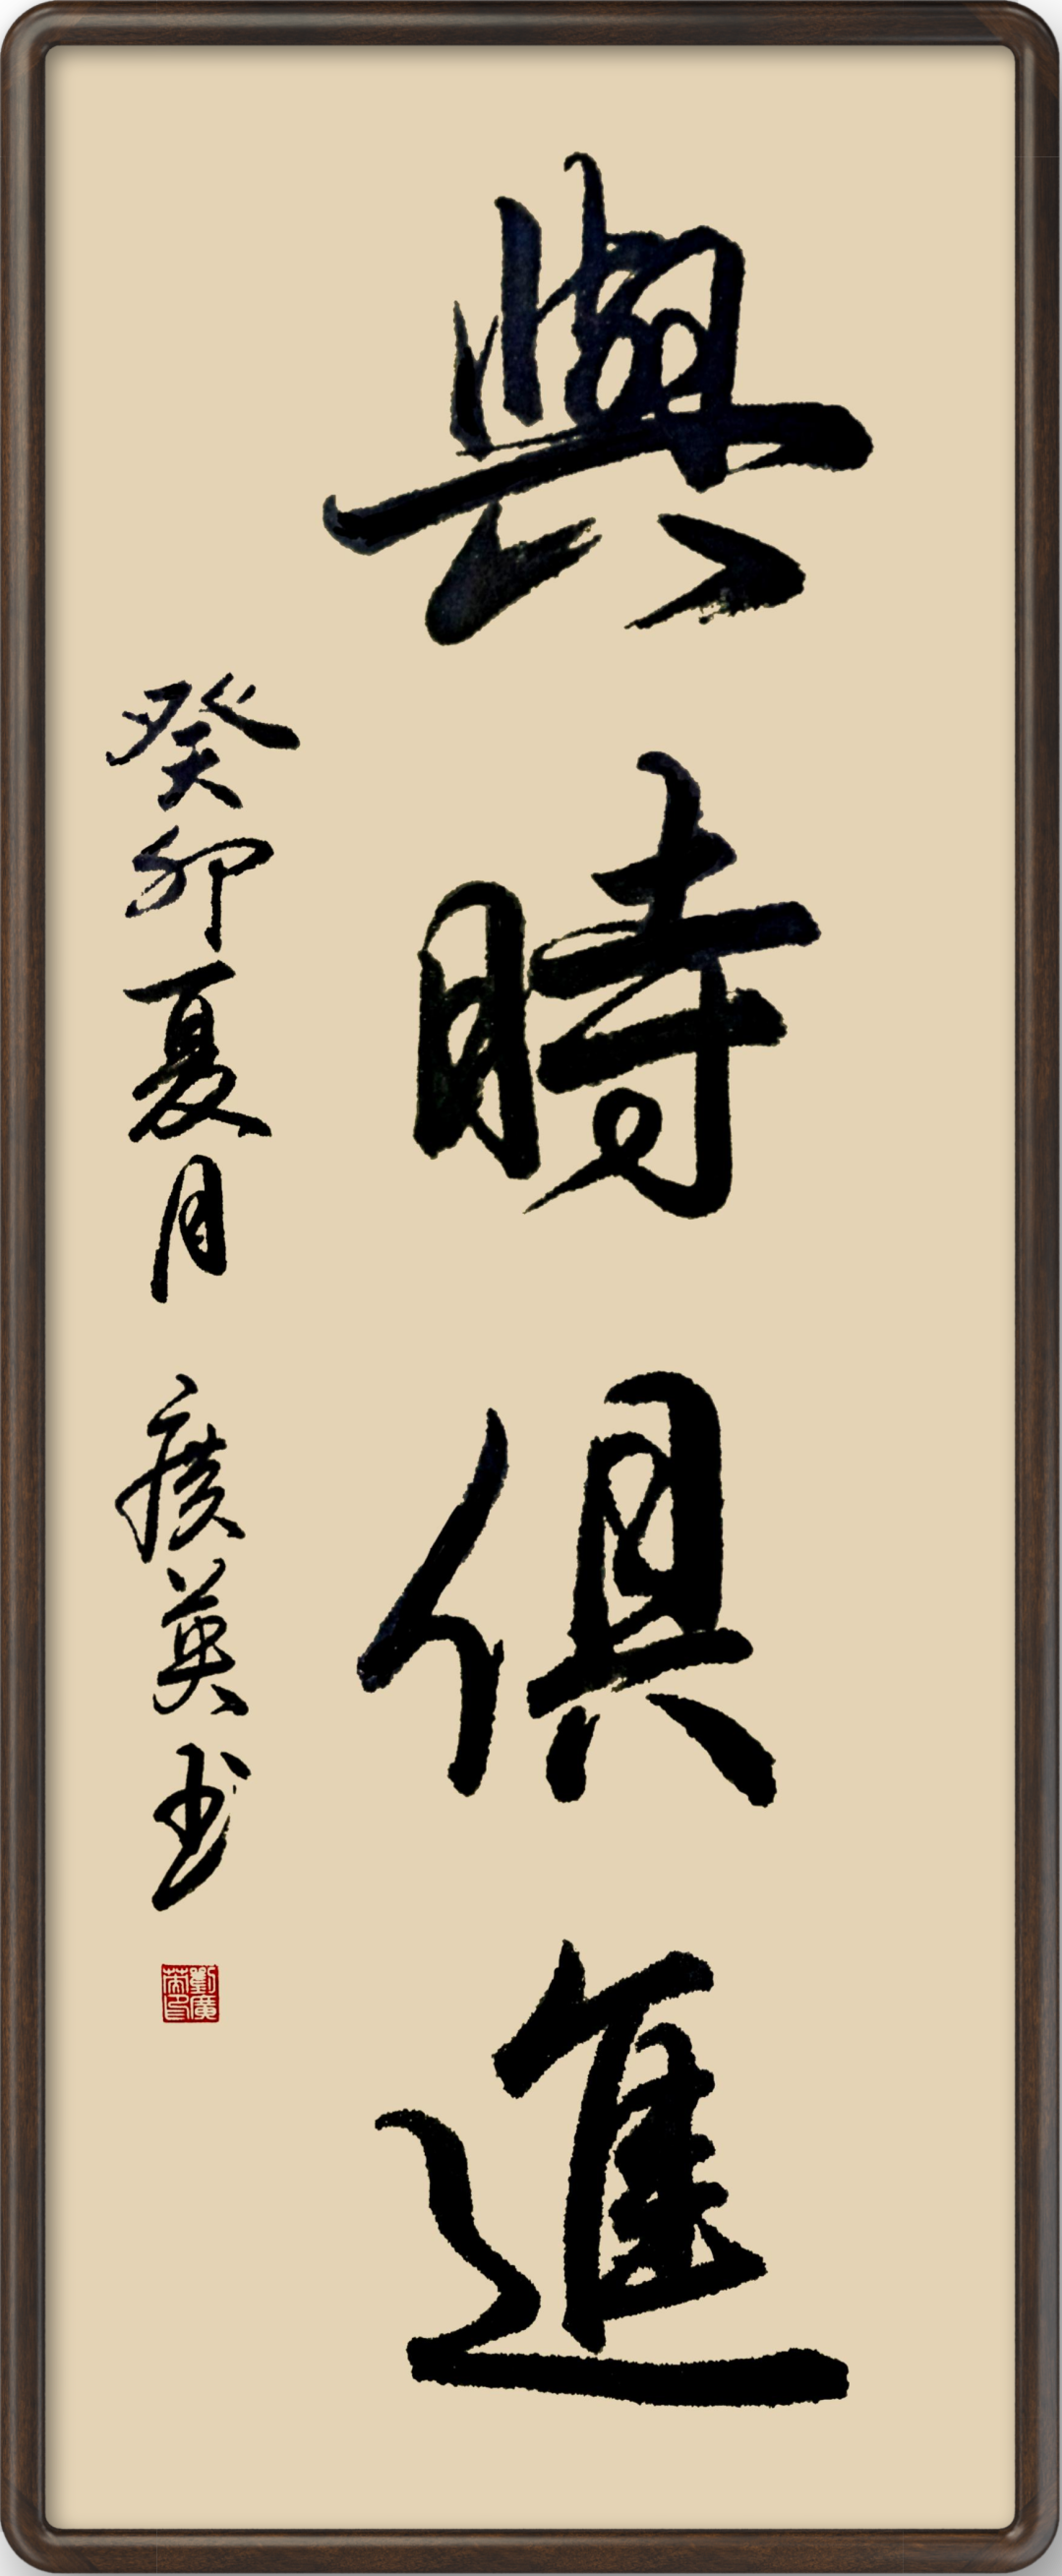 與時俱進
癸卯夏月 廣英书
劉廣英印